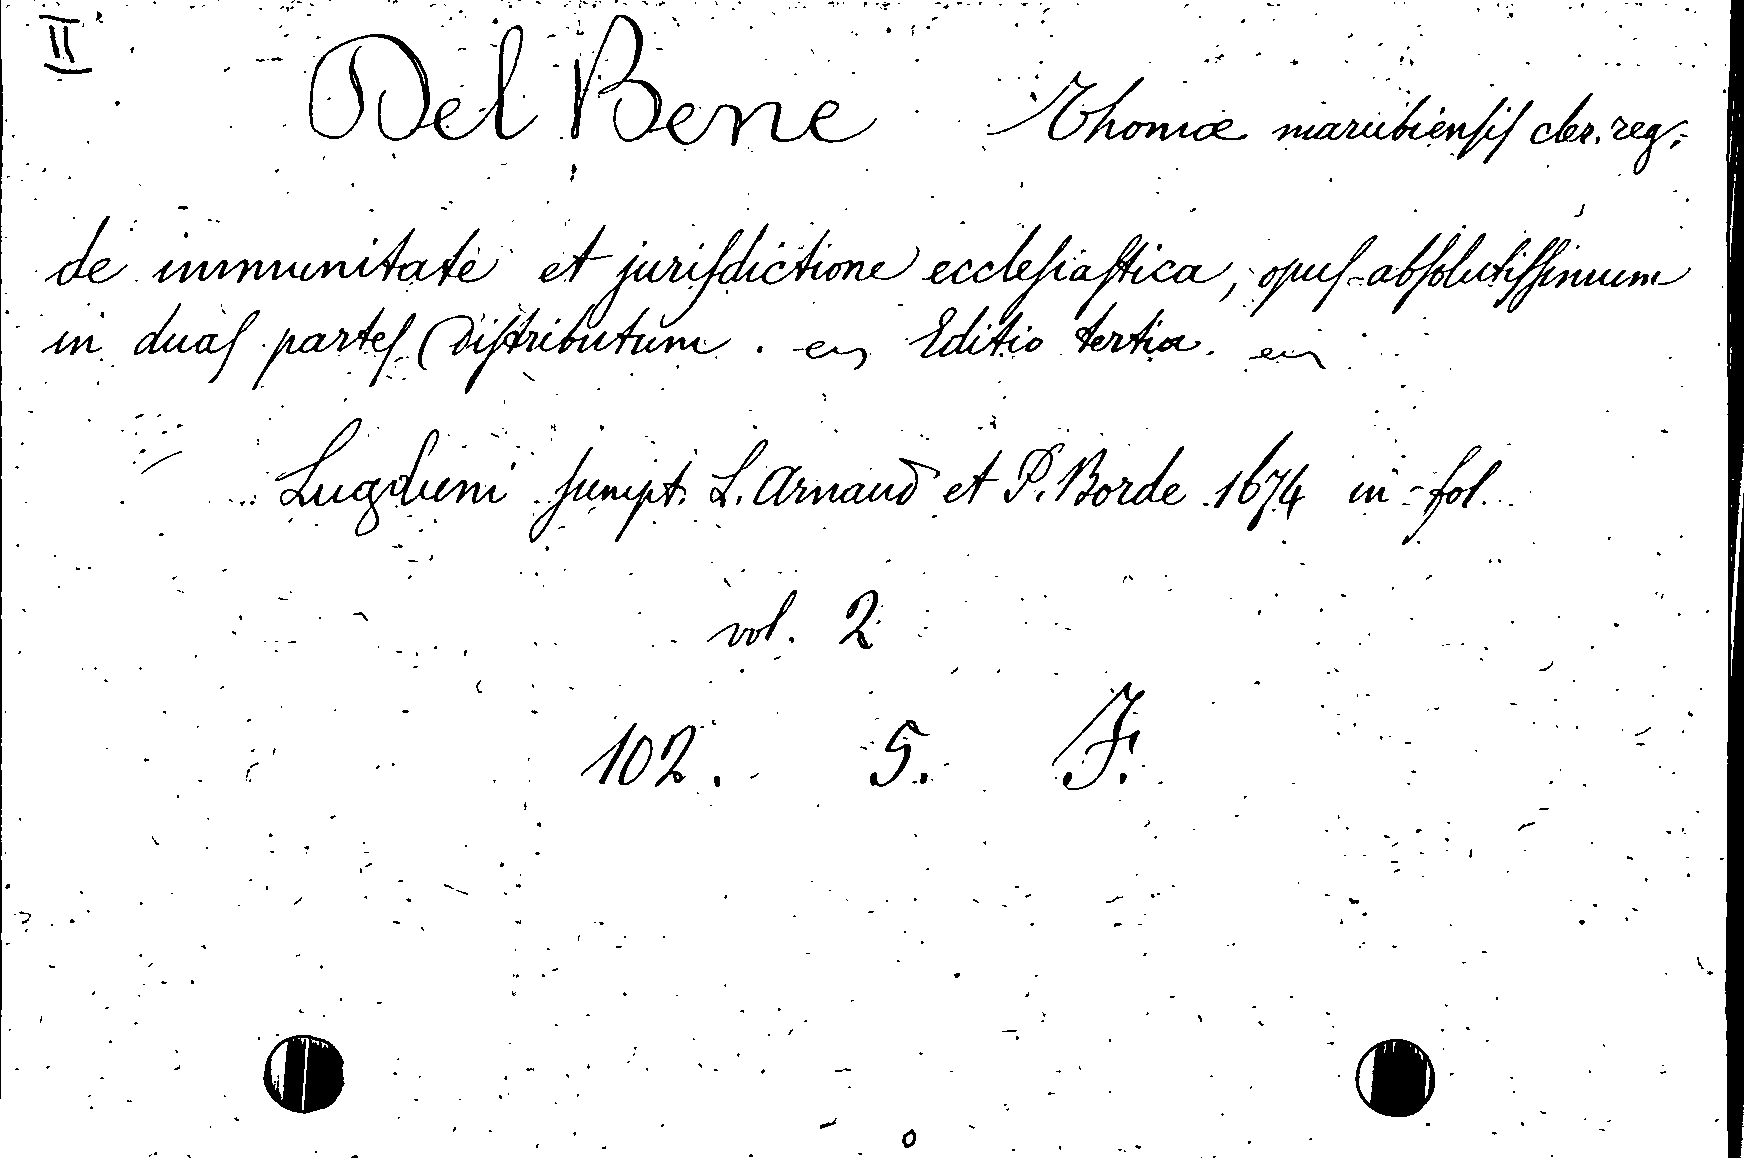 II
Del Bene Thomæ marubienſiſ cler. reg.
de immunitate et juriſdictione eccleſiaſtica, opuſ abſolutiſſimum
in duaſ parteſ Diſtributum. Editio tertia.
Lugduni ſumpt. L. Arnaud et P. Borde 1674 in-fol.
vol. 2
102. 5. F.